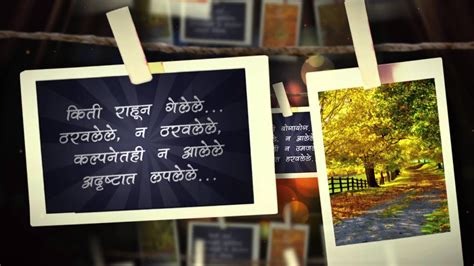 किती राहून गेलेले...
ठरवलेले, न ठरवलेले,
कल्पनेतही न आलेले
अदृष्टात लपलेले...
न आलेले
ठरवलेले,